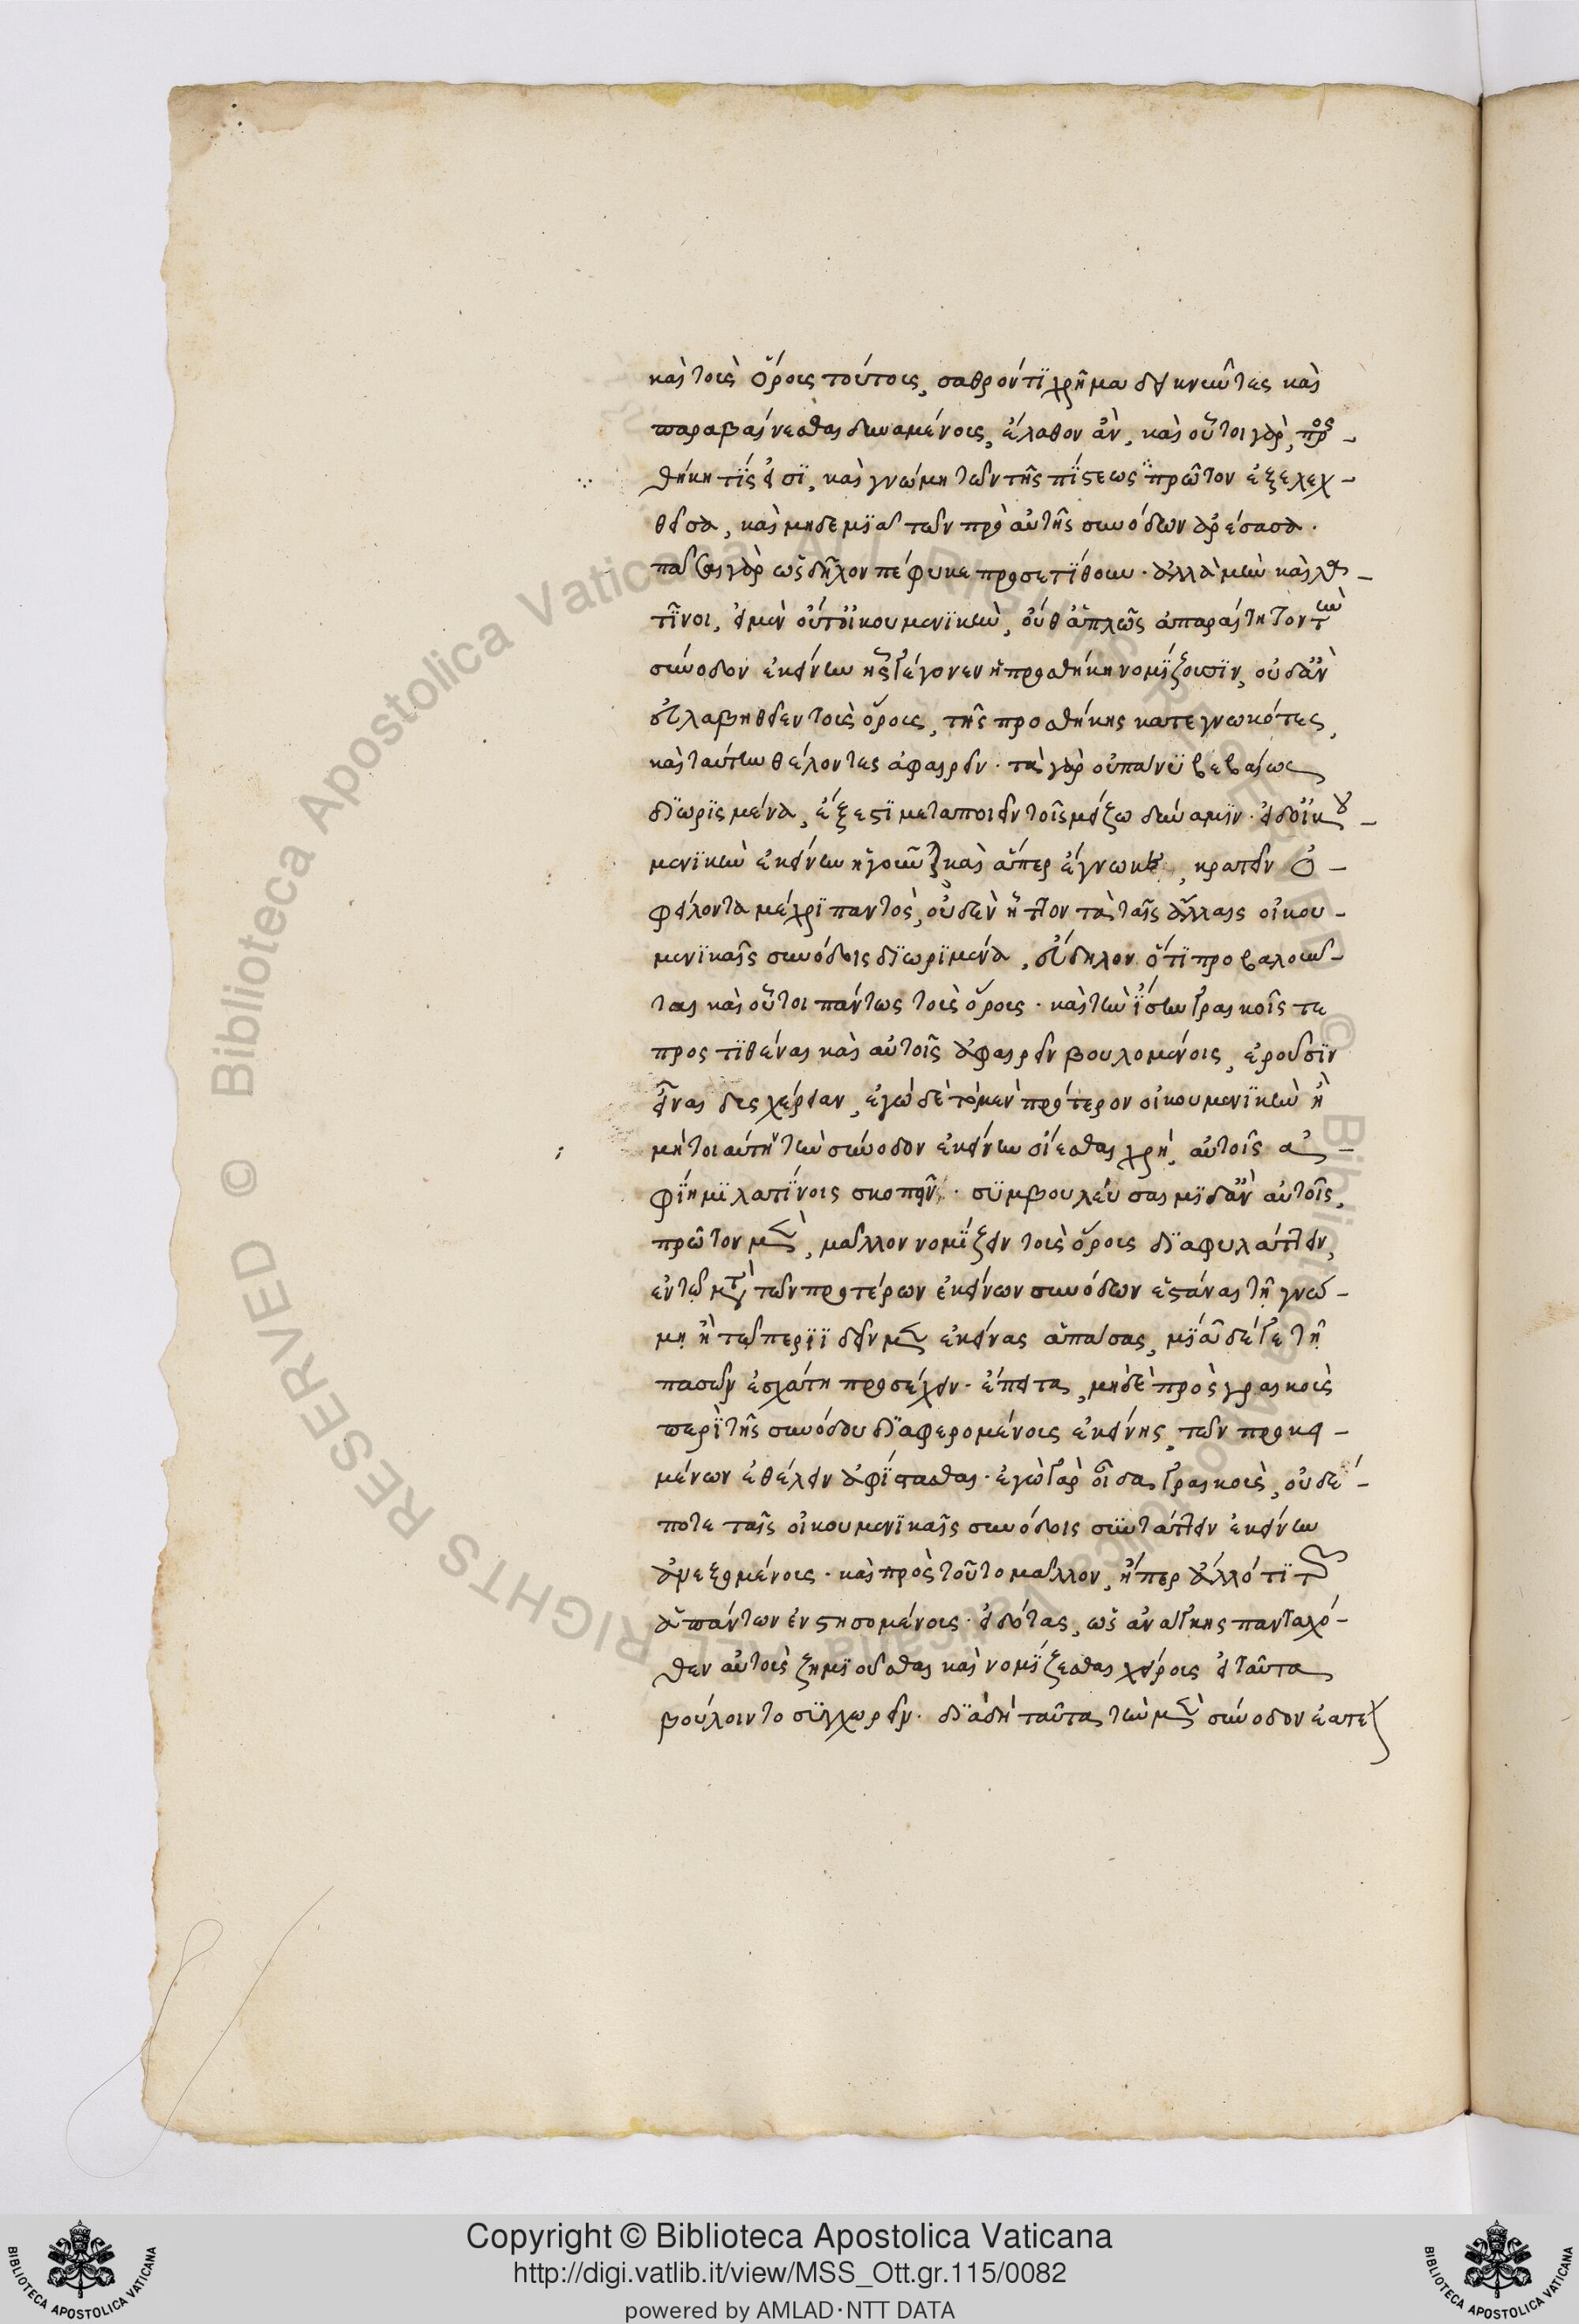 καὶ τοὺς ὅρους τούτους, σαθρόν τι χρῆμα δεικνῦντες καὶ
παραβαίνεσθαι δυναμένους, ἔλαθον ἄν, καὶ οὗτοι γὰρ, προς-
θήκη τίς εἰσι, καὶ γνώμη τῶν τῆς πίστεως πρῶτον ἐξελεχ-
θεῖσα, καὶ μηδεμιᾷ τῶν πρὸ αὐτῆς συνόδων ἀρέσασα.
γὰρ ὡς δῆλον πέφυκε προσετίθουν. ἀλλὰ μὴν καὶ λα-
τῖνοι, εἰ μὲν οὔτ' οἰκουμενικὴν, οὔθ' ἁπλῶς ἀπαραίτητον τὴν
σύνοδον ἐκείνην ἧς γέγονεν ἡ προσθήκη νομίζουσιν, οὐδ' ἂν
εὐλαβηθεῖεν τοὺς ὅρους, τῆς προσθήκης κατεγνωκότες,
καὶ ταύτην θέλοντες ἀφαιρεῖν. τὰ γὰρ οὐ πάνυ βεβαίως
διωρισμένα, ἔξεστι μεταποιεῖν τοῖς μείζω δύναμιν. εἰ δ' οἰκου-
μενικὴν ἐκείνην ἡγοῦνται καὶ ἅπερ ἔγνωκε, κρατεῖν ὀ-
φείλοντα μέχρι παντὸς, οὐδὲν ἧττον τὰ ταῖς ἄλλαις οἰκου-
μενικαῖς συνόδοις διωριμένα, εὔδηλον ὅτι προβαλοῦν-
ται καὶ οὗτοι πάντως τοὺς ὅρους. καὶ τὴν ἴσην γραικοῖς τε
προςτιθέναι καὶ αὐτοῖς ἀφαιρεῖν βουλομένοις, ἐροῦσιν
εἶναι δυςχέρειαν, ἐγὼ δὲ τὸ μὲν πρότερον οἰκουμενικὴν ἢ
μὴ τοιαύτην τὴν σύνοδον ἐκείνην οἴεσθαι χρὴ, αὐτοῖς ἀ-
φίημι λατίνοις σκοπεῖν. συμβουλεύσαιμι δ' ἂν αὐτοῖς,
πρῶτον μὲν, μᾶλλον νομίζειν τοὺς ὅρους διαφυλάττειν,
ἐν τῷ κατὰ τῶν προτέρων ἐκείνων συνόδων ἑστάναι τῇ γνώ-
μῃ ἢ τῷ περιϊδεῖν μὲν ἐκείνας ἁπάσας, μιᾷ δέ γε τῇ
πασῶν ἐσχάτῃ προσέχειν. ἔπειτα, μηδὲ πρὸς γραικοὺς
περὶ τῆς συνόδου διαφερομένους ἐκείνης, τῶν προκει-
μένων ἐθέλειν ἀφίστασθαι. ἐγὼ γὰρ οἶδα γραικοὺς, οὐδέ-
ποτε ταῖς οἰκουμενικαῖς συνόδοις συντάττειν ἐκείνην
ἀνεξομένους. καὶ πρὸς τοῦτο μᾶλλον, ἤπερ ἄλλό τι τῶν
ἁπάντων ἐνστησομένους. εἰδότας, ὡς ἀνάγκης πανταχό-
θεν αὐτοὺς ζημιοῦσθαι καὶ νομίζεσθαι χείρους εἰ ταῦτα
βούλοιντο συγχωρεῖν. διὰ δὴ ταῦτα τὴν μὲν σύνοδον